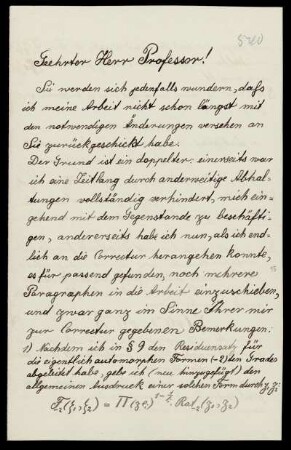 Geehrter Herr Professor!
Sie werden sich jedenfalls wundern, daß
ich meine Arbeit nicht schon längst mit
den notwendigen Änderungen versehen an
Sie zurückgeschickt habe.
Der Grund ist ein doppelter: einerseits war
ich eine Zeitlang durch anderweitige Abhal-
tungen vollständig verhindert, mich ein-
gehend mit dem Gegenstande zu beschäfti-
gen, andererseits habe ich nun, als ich end-
lich an die Correctur herangehen konnte,
es für passend gefunden, noch mehrere
Paragraphen in die Arbeit einzuschieben,
und zwar ganz im Sinne Ihrer mir
zur Correctur gegebenen Bemerkungen.
1) Nachdem ich in § 9 den Residuensatz für
die eigentlich automorphen Formen (-2)ten Grades
abgeleitet habe, gebe ich (neu hinzugefügt) den
allgemeinen Ausdruck einer solchen Form durch